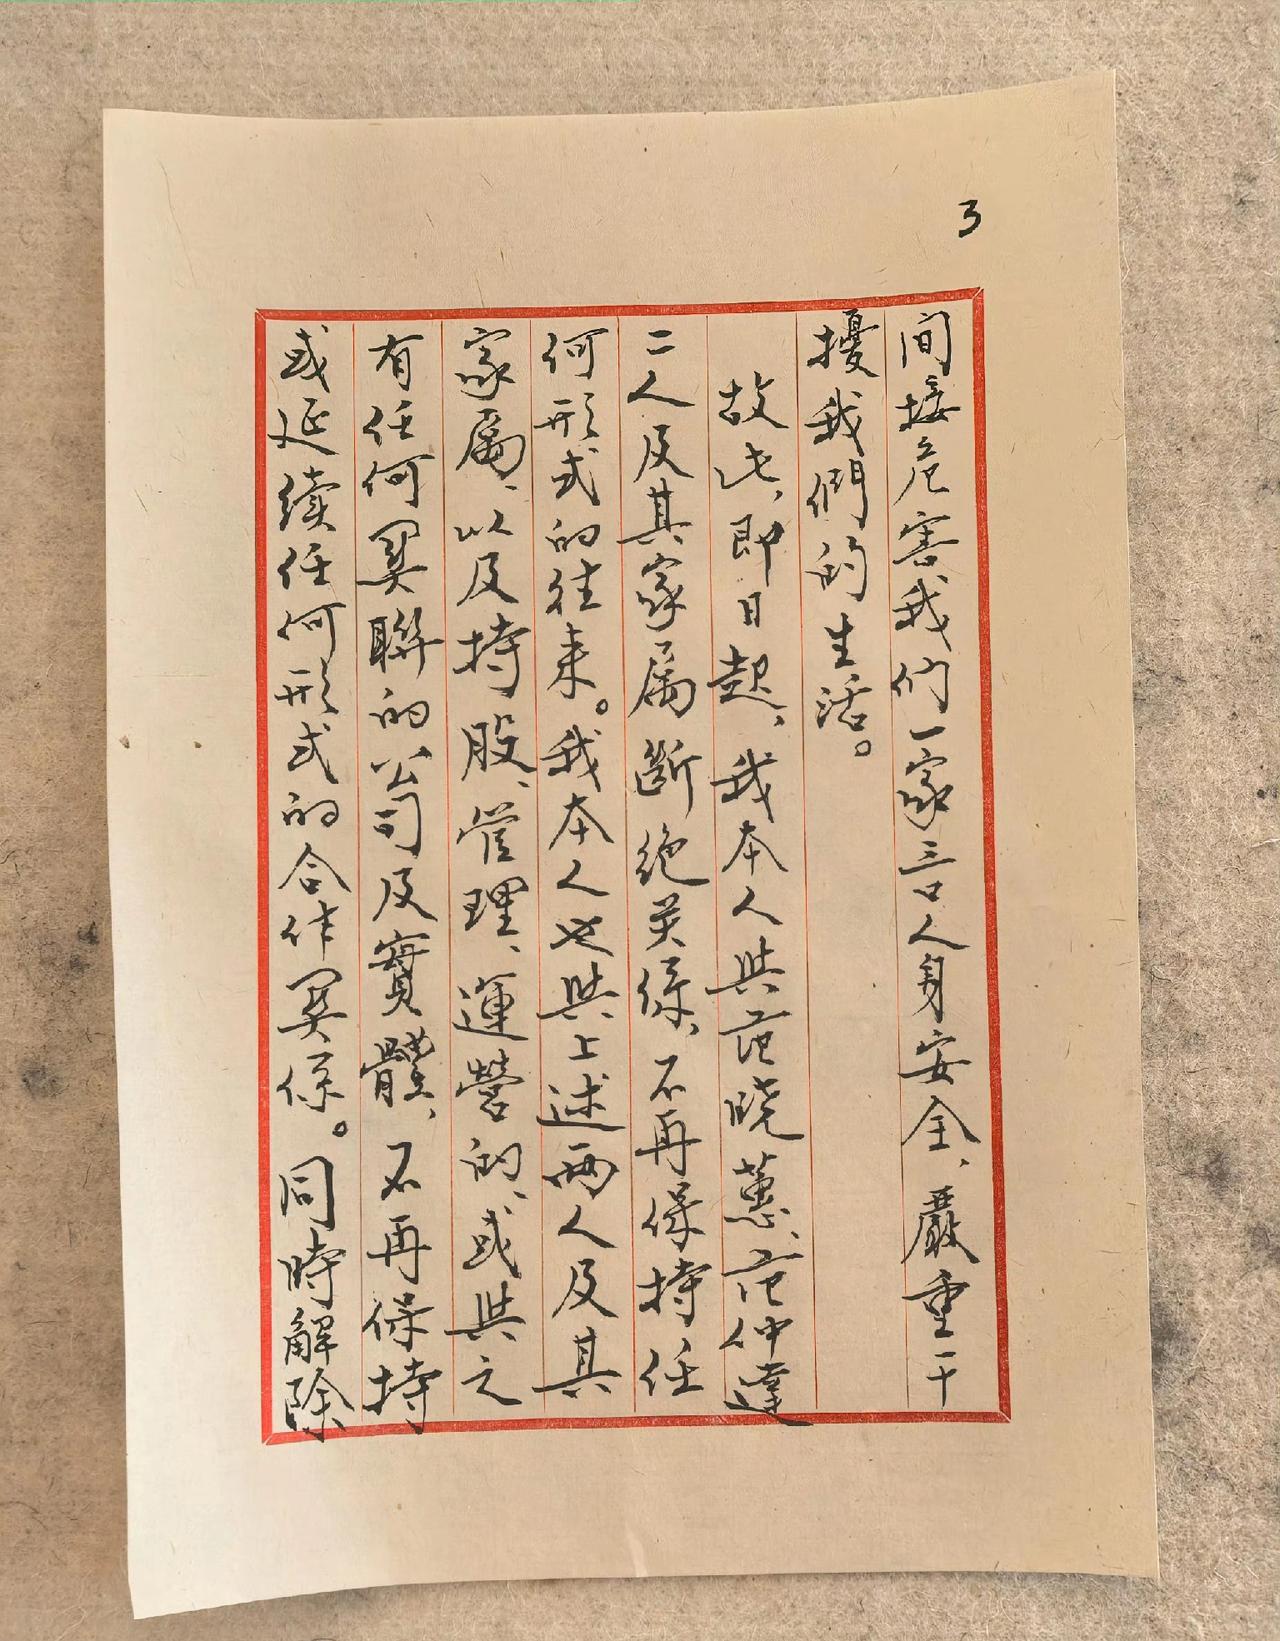 3
间接危害我们一家三口人身安全、嚴重干
擾我們的生活。
故此，即日起、我本人與范晓蕙、范仲達
二人及其家属斷绝关係、不再保持任
何形式的往来。我本人也與上述两人及其
家属、以及持股、管理、運營的、或與之
有任何関聯的公司及實體、不再保持
或延续任何形式的合作関係。同時解除